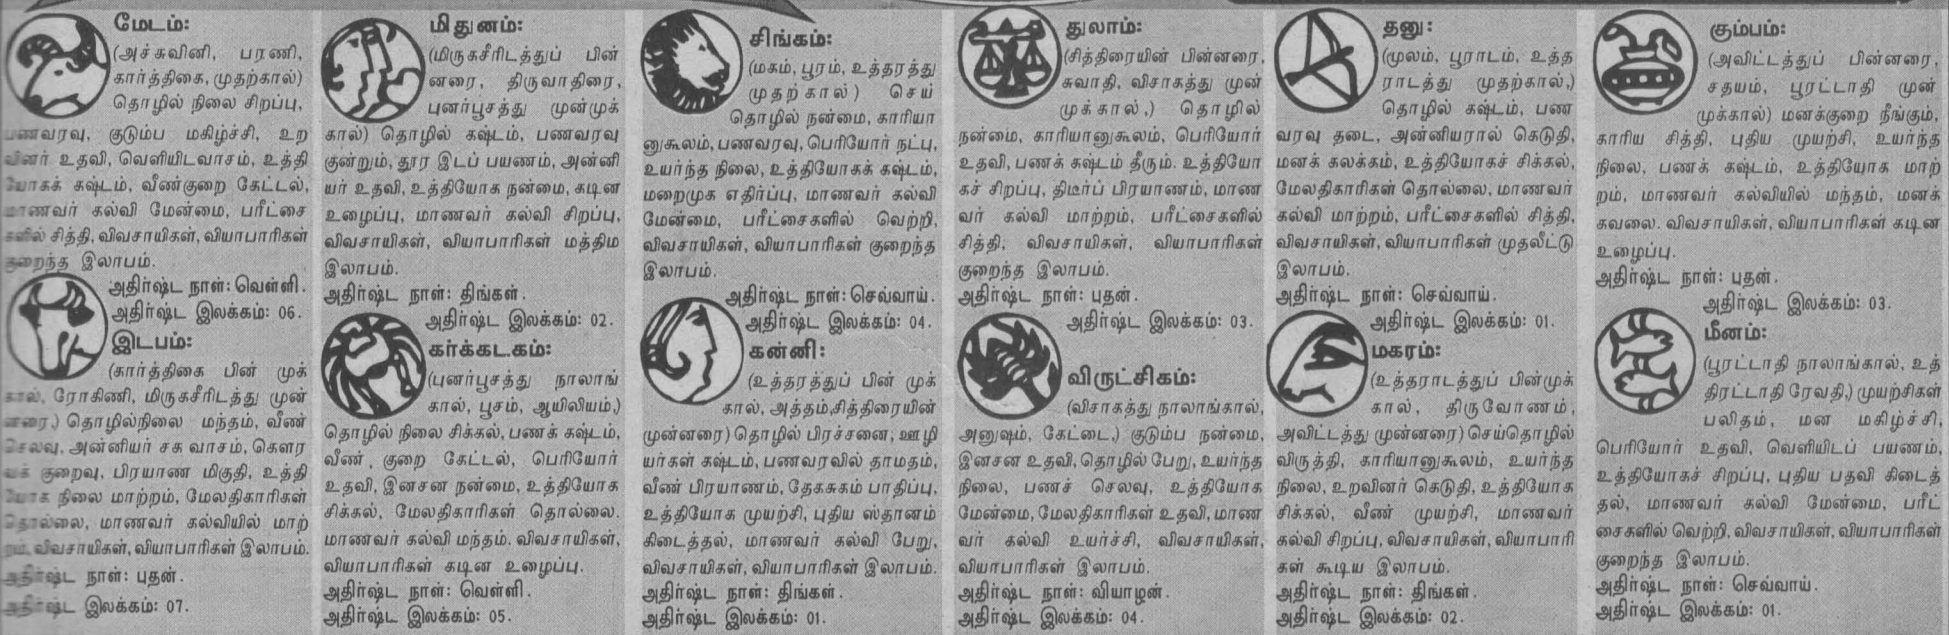 மேடம்:
(அச்சுவினி, பரணி,
கார்த்திகை, முதற்கால்)
தொழில் நிலை சிறப்பு,
பணவரவு, குடும்ப மகிழ்ச்சி, உற
வினர் உதவி, வெளியிடவாசம், உத்தி
யோகக் கஷ்டம், வீண்குறை கேட்டல்,
மாணவர் கல்வி மேன்மை, பரீட்சை
களில் சித்தி, விவசாயிகள், வியாபாரிகள்
குறைந்த இலாபம்.
அதிர்ஷ்ட நாள்: வெள்ளி.
அதிர்ஷ்ட இலக்கம்: 06.
இடபம்:
(கார்த்திகை பின் முக்
கால், ரோகிணி, மிருகசீரிடத்து முன்
னரை,) தொழில்நிலை மந்தம், வீண்
செலவு, அன்னியர் சக வாசம், கௌர
வக் குறைவு, பிரயாண மிகுதி, உத்தி
யோக நிலை மாற்றம், மேலதிகாரிகள்
தொல்லை, மாணவர் கல்வியில் மாற்
றம், விவசாயிகள், வியாபாரிகள் இலாபம்.
அதிர்ஷ்ட நாள்: புதன்.
அதிர்ஷ்ட இலக்கம்: 07.
மிதுனம்:
(மிருகசீரிடத்துப் பின்
னரை, திருவாதிரை,
புனர்பூசத்து முன்முக்
கால்) தொழில் கஷ்டம், பணவரவு
குன்றும், தூர இடப் பயணம், அன்னி
யர் உதவி, உத்தியோக நன்மை, கடின
உழைப்பு, மாணவர் கல்வி சிறப்பு,
விவசாயிகள், வியாபாரிகள் மத்திம
இலாபம்.
அதிர்ஷ்ட நாள்: திங்கள்.
அதிர்ஷ்ட இலக்கம்: 02.
கர்க்கடகம்:
(புனர்பூசத்து நாலாங்
கால், பூசம், ஆயிலியம்,)
தொழில் நிலை சிக்கல், பணக் கஷ்டம்,
வீண் குறை கேட்டல், பெரியோர்
உதவி, இனசன நன்மை, உத்தியோக
சிக்கல், மேலதிகாரிகள் தொல்லை.
மாணவர் கல்வி மந்தம். விவசாயிகள்,
வியாபாரிகள் கடின உழைப்பு.
அதிர்ஷ்ட நாள்: வெள்ளி.
அதிர்ஷ்ட இலக்கம்: 05.
சிங்கம்:
(மகம், பூரம், உத்தரத்து
முதற்கால்) செய்
தொழில் நன்மை, காரியா
னுகூலம், பணவரவு, பெரியோர் நட்பு,
உயர்ந்த நிலை, உத்தியோகக் கஷ்டம்,
மறைமுக எதிர்ப்பு, மாணவர் கல்வி
மேன்மை, பரீட்சைகளில் வெற்றி,
விவசாயிகள், வியாபாரிகள் குறைந்த
இலாபம்.
அதிர்ஷ்ட நாள்: செவ்வாய்.
அதிர்ஷ்ட இலக்கம்: 04.
கன்னி:
(உத்தரத்துப் பின் முக்
கால், அத்தம்,சித்திரையின்
முன்னரை) தொழில் பிரச்சனை, ஊழி
யர்கள் கஷ்டம், பணவரவில் தாமதம்,
வீண் பிரயாணம், தேகசுகம் பாதிப்பு,
உத்தியோக முயற்சி, புதிய ஸ்தானம்
கிடைத்தல், மாணவர் கல்வி பேறு,
விவசாயிகள், வியாபாரிகள் இலாபம்.
அதிர்ஷ்ட நாள்: திங்கள்.
அதிர்ஷ்ட இலக்கம்: 01.
துலாம்:
(சித்திரையின் பின்னரை,
சுவாதி, விசாகத்து முன்
முக்கால்,) தொழில்
நன்மை, காரியானுகூலம், பெரியோர்
உதவி, பணக் கஷ்டம் தீரும். உத்தியோ
கச் சிறப்பு, திடீர்ப் பிரயாணம், மாண
வர் கல்வி மாற்றம், பரீட்சைகளில்
சித்தி, விவசாயிகள், வியாபாரிகள்
குறைந்த இலாபம்.
அதிர்ஷ்ட நாள்: புதன்.
அதிர்ஷ்ட இலக்கம்: 03.
விருட்சிகம்:
(விசாகத்து நாலாங்கால்,
அனுஷம், கேட்டை,) குடும்ப நன்மை,
இனசன உதவி, தொழில் பேறு, உயர்ந்த
நிலை, பணச் செலவு, உத்தியோக
மேன்மை, மேலதிகாரிகள் உதவி, மாண
வர் கல்வி உயர்ச்சி, விவசாயிகள்,
வியாபாரிகள் இலாபம்.
அதிர்ஷ்ட நாள்: வியாழன்.
அதிர்ஷ்ட இலக்கம்: 04.
தனு:
(மூலம், பூராடம், உத்த
ராடத்து முதற்கால்,)
தொழில் கஷ்டம், பண
வரவு தடை, அன்னியரால் கெடுதி,
மனக் கலக்கம், உத்தியோகச் சிக்கல்,
மேலதிகாரிகள் தொல்லை, மாணவர்
கல்வி மாற்றம், பரீட்சைகளில் சித்தி,
விவசாயிகள், வியாபாரிகள் முதலீட்டு
இலாபம்.
அதிர்ஷ்ட நாள்: செவ்வாய்.
அதிர்ஷ்ட இலக்கம்: 01.
மகரம்:
(உத்தராடத்துப் பின்முக்
கால், திருவோணம்,
அவிட்டத்து முன்னரை) செய்தொழில்
விருத்தி, காரியானுகூலம், உயர்ந்த
நிலை, உறவினர் கெடுதி, உத்தியோக
சிக்கல், வீண் முயற்சி, மாணவர்
கல்வி சிறப்பு, விவசாயிகள், வியாபாரி
கள் கூடிய இலாபம்.
அதிர்ஷ்ட நாள்: திங்கள்.
அதிர்ஷ்ட இலக்கம்: 02.
கும்பம்:
(அவிட்டத்துப் பின்னரை,
சதயம், பூரட்டாதி முன்
முக்கால்) மனக்குறை நீங்கும்,
காரிய சித்தி, புதிய முயற்சி, உயர்ந்த
நிலை, பணக் கஷ்டம், உத்தியோக மாற்
றம், மாணவர் கல்வியில் மந்தம், மனக்
கவலை. விவசாயிகள், வியாபாரிகள் கடின
உழைப்பு.
அதிர்ஷ்ட நாள்: புதன்.
அதிர்ஷ்ட இலக்கம்: 03.
மீனம்:
(பூரட்டாதி நாலாங்கால், உத்
திரட்டாதி ரேவதி,) முயற்சிகள்
பலிதம், மன மகிழ்ச்சி,
பெரியோர் உதவி, வெளியிடப் பயணம்,
உத்தியோகச் சிறப்பு, புதிய பதவி கிடைத்
தல், மாணவர் கல்வி மேன்மை, பரீட்
சைகளில் வெற்றி, விவசாயிகள், வியாபாரிகள்
குறைந்த இலாபம்.
அதிர்ஷ்ட நாள்: செவ்வாய்.
அதிர்ஷ்ட இலக்கம்: 01.